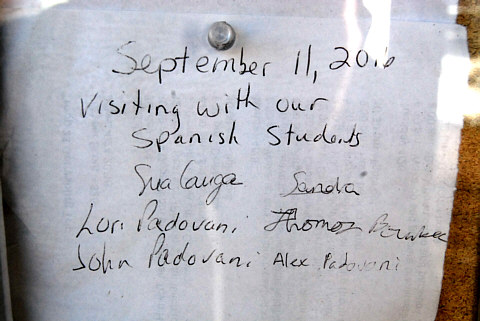 September 11, 2016
Visiting with our
Spanish Students
Sandra
Lori Padovani Thomas
John Padovani Alex Padovani